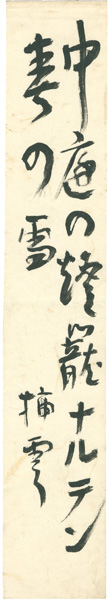 中庭の燈籠ナルテン
春の雪